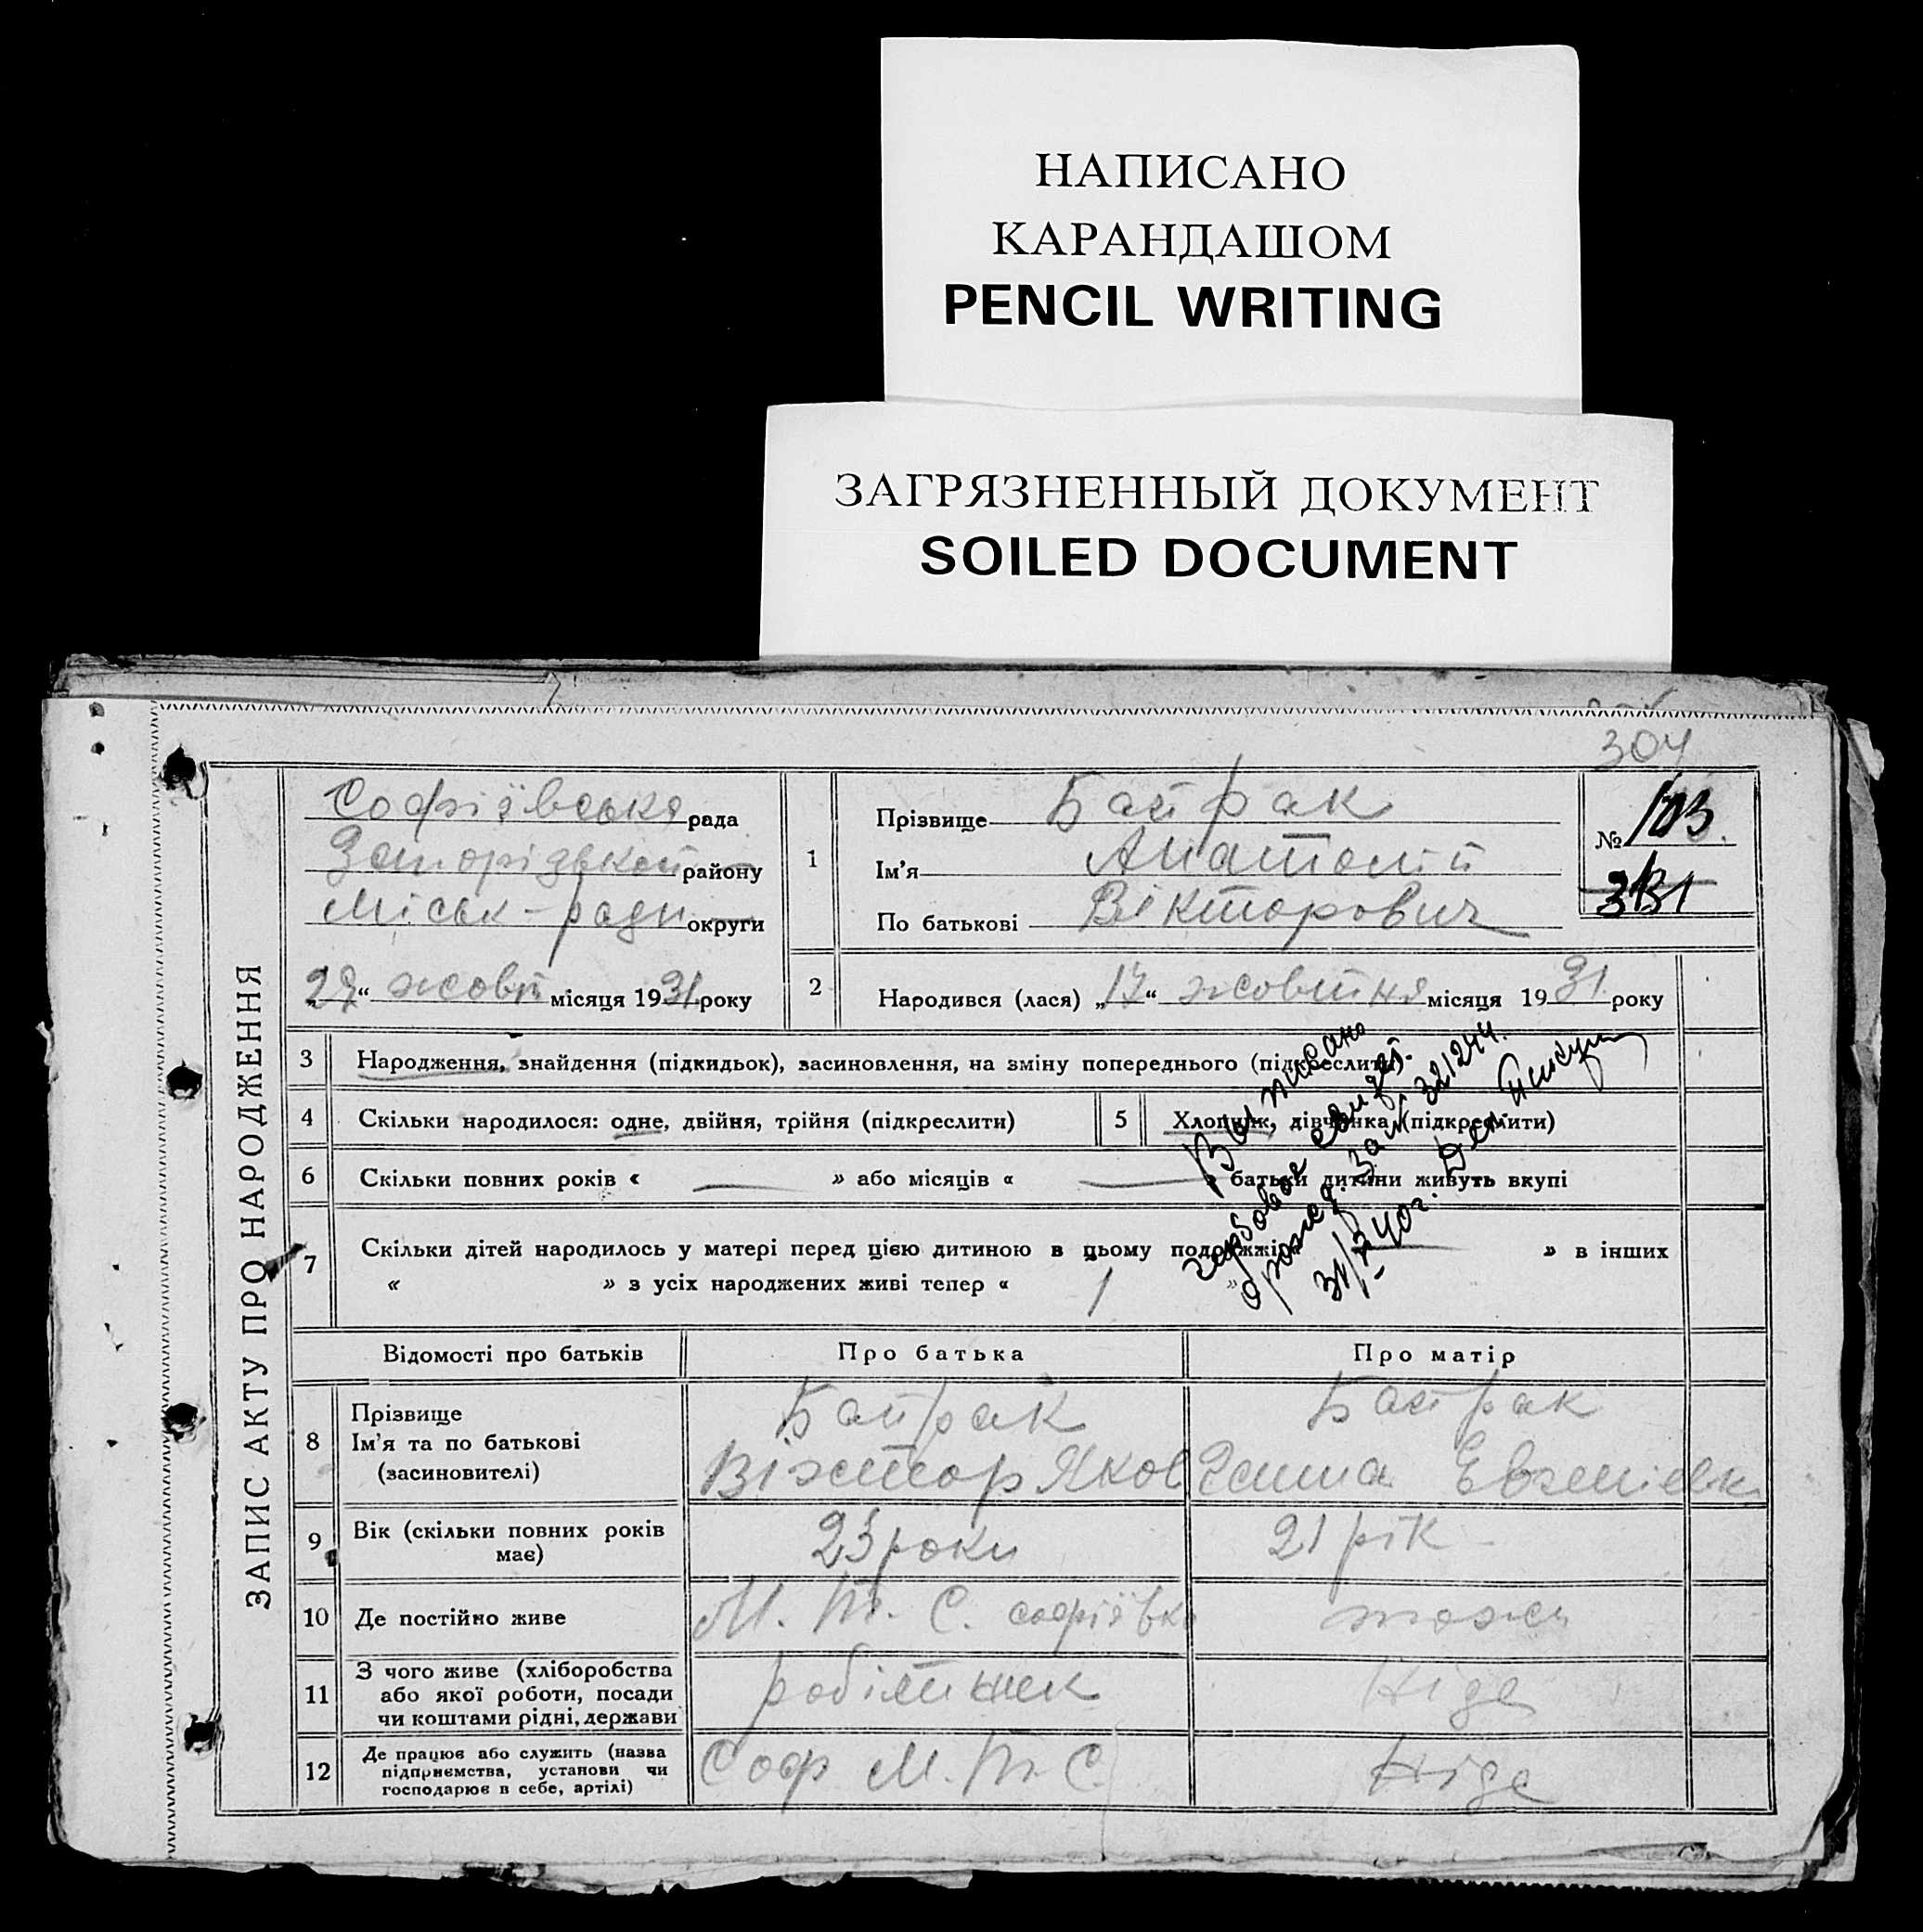 НАПИСАНО
КАРАНДАШОМ
PENCIL WRITING
ЗАГРЯЗНЕННЫЙ ДОКУМЕНТ
SOILED DOCUMENT
304
ЗАПИС АКТУ ПРО НАРОДЖЕННЯ
Софіївська рада
Запорізької району
Міськ-ради округи
27 “ жовт місяця 1931 року
1
Прізвище Байрак
Ім’я Анатолій
По батькові Вікторович
№ 103.
331
2 Народився (лася) „17“ жовтня місяця 1931. року
3 Народження, знайдення (підкидьок), засиновлення, на зміну попереднього (підкреслити)
4 Скільки народилося: одне, двійня, трійня (підкреслити)
5 Хлопчик, дівчинка (підкреслити)
6 Скільки повних років « — » або місяців « — » батьки дитини живуть вкупі
7 Скільки дітей народилось у матері перед цією дитиною в цьому подружжі « — » в інших
« » з усіх народжених живі тепер « 1 »
Выписано
гербовое свидет.
о рожд. за № 321244.
31/3 40г.
Відомості про батьків Про батька Про матір
8 Прізвище Байрак Байрак
Ім’я та по батькові
(засиновителі) Віктор Яков Евгенієвн
9 Вік (скільки повних років має) 23 роки 21 рік -
10 Де постійно живе М. Т. С. софіївка тожи
11 З чого живе (хліборобства
або якої роботи, посади
чи коштами рідні, держави робітник Ніде
12 Де працює або служить (назва
підприємства, установи чи
господарює в себе, артілі) Соф М. Т. С. Ніде